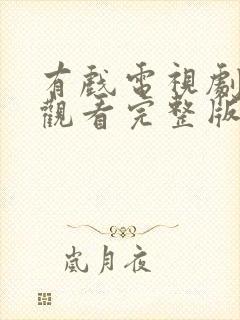 有戲電視劇
觀看完整版
嵐月夜